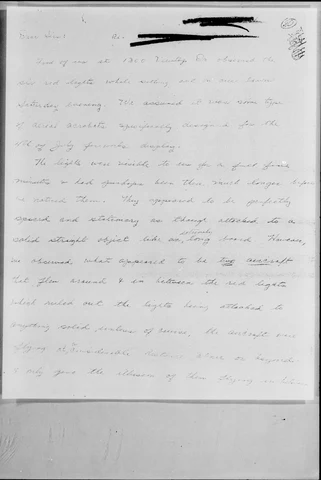 Dear Sirs: Re:
Five of us at 1800 Dr observed the
six red lights while sitting out in our
Saturday evening. We assumed it was some type
of aerial acrobats specifically designed for the
4th of July fireworks display.
The lights were visible to us for a full five
minutes & had perhaps been there much longer before
we noticed them. They appeared to be perfectly
spaced and stationary as though attached to a
extremely
solid straight object like an, long board. However,
we observed, what appeared to be two aircraft
that flew around & in between the red lights
which ruled out the lights being attached to
anything solid, unless of course, the aircraft were
flying at, considerable distance above or beyond
& only gave the illusion of them flying in between